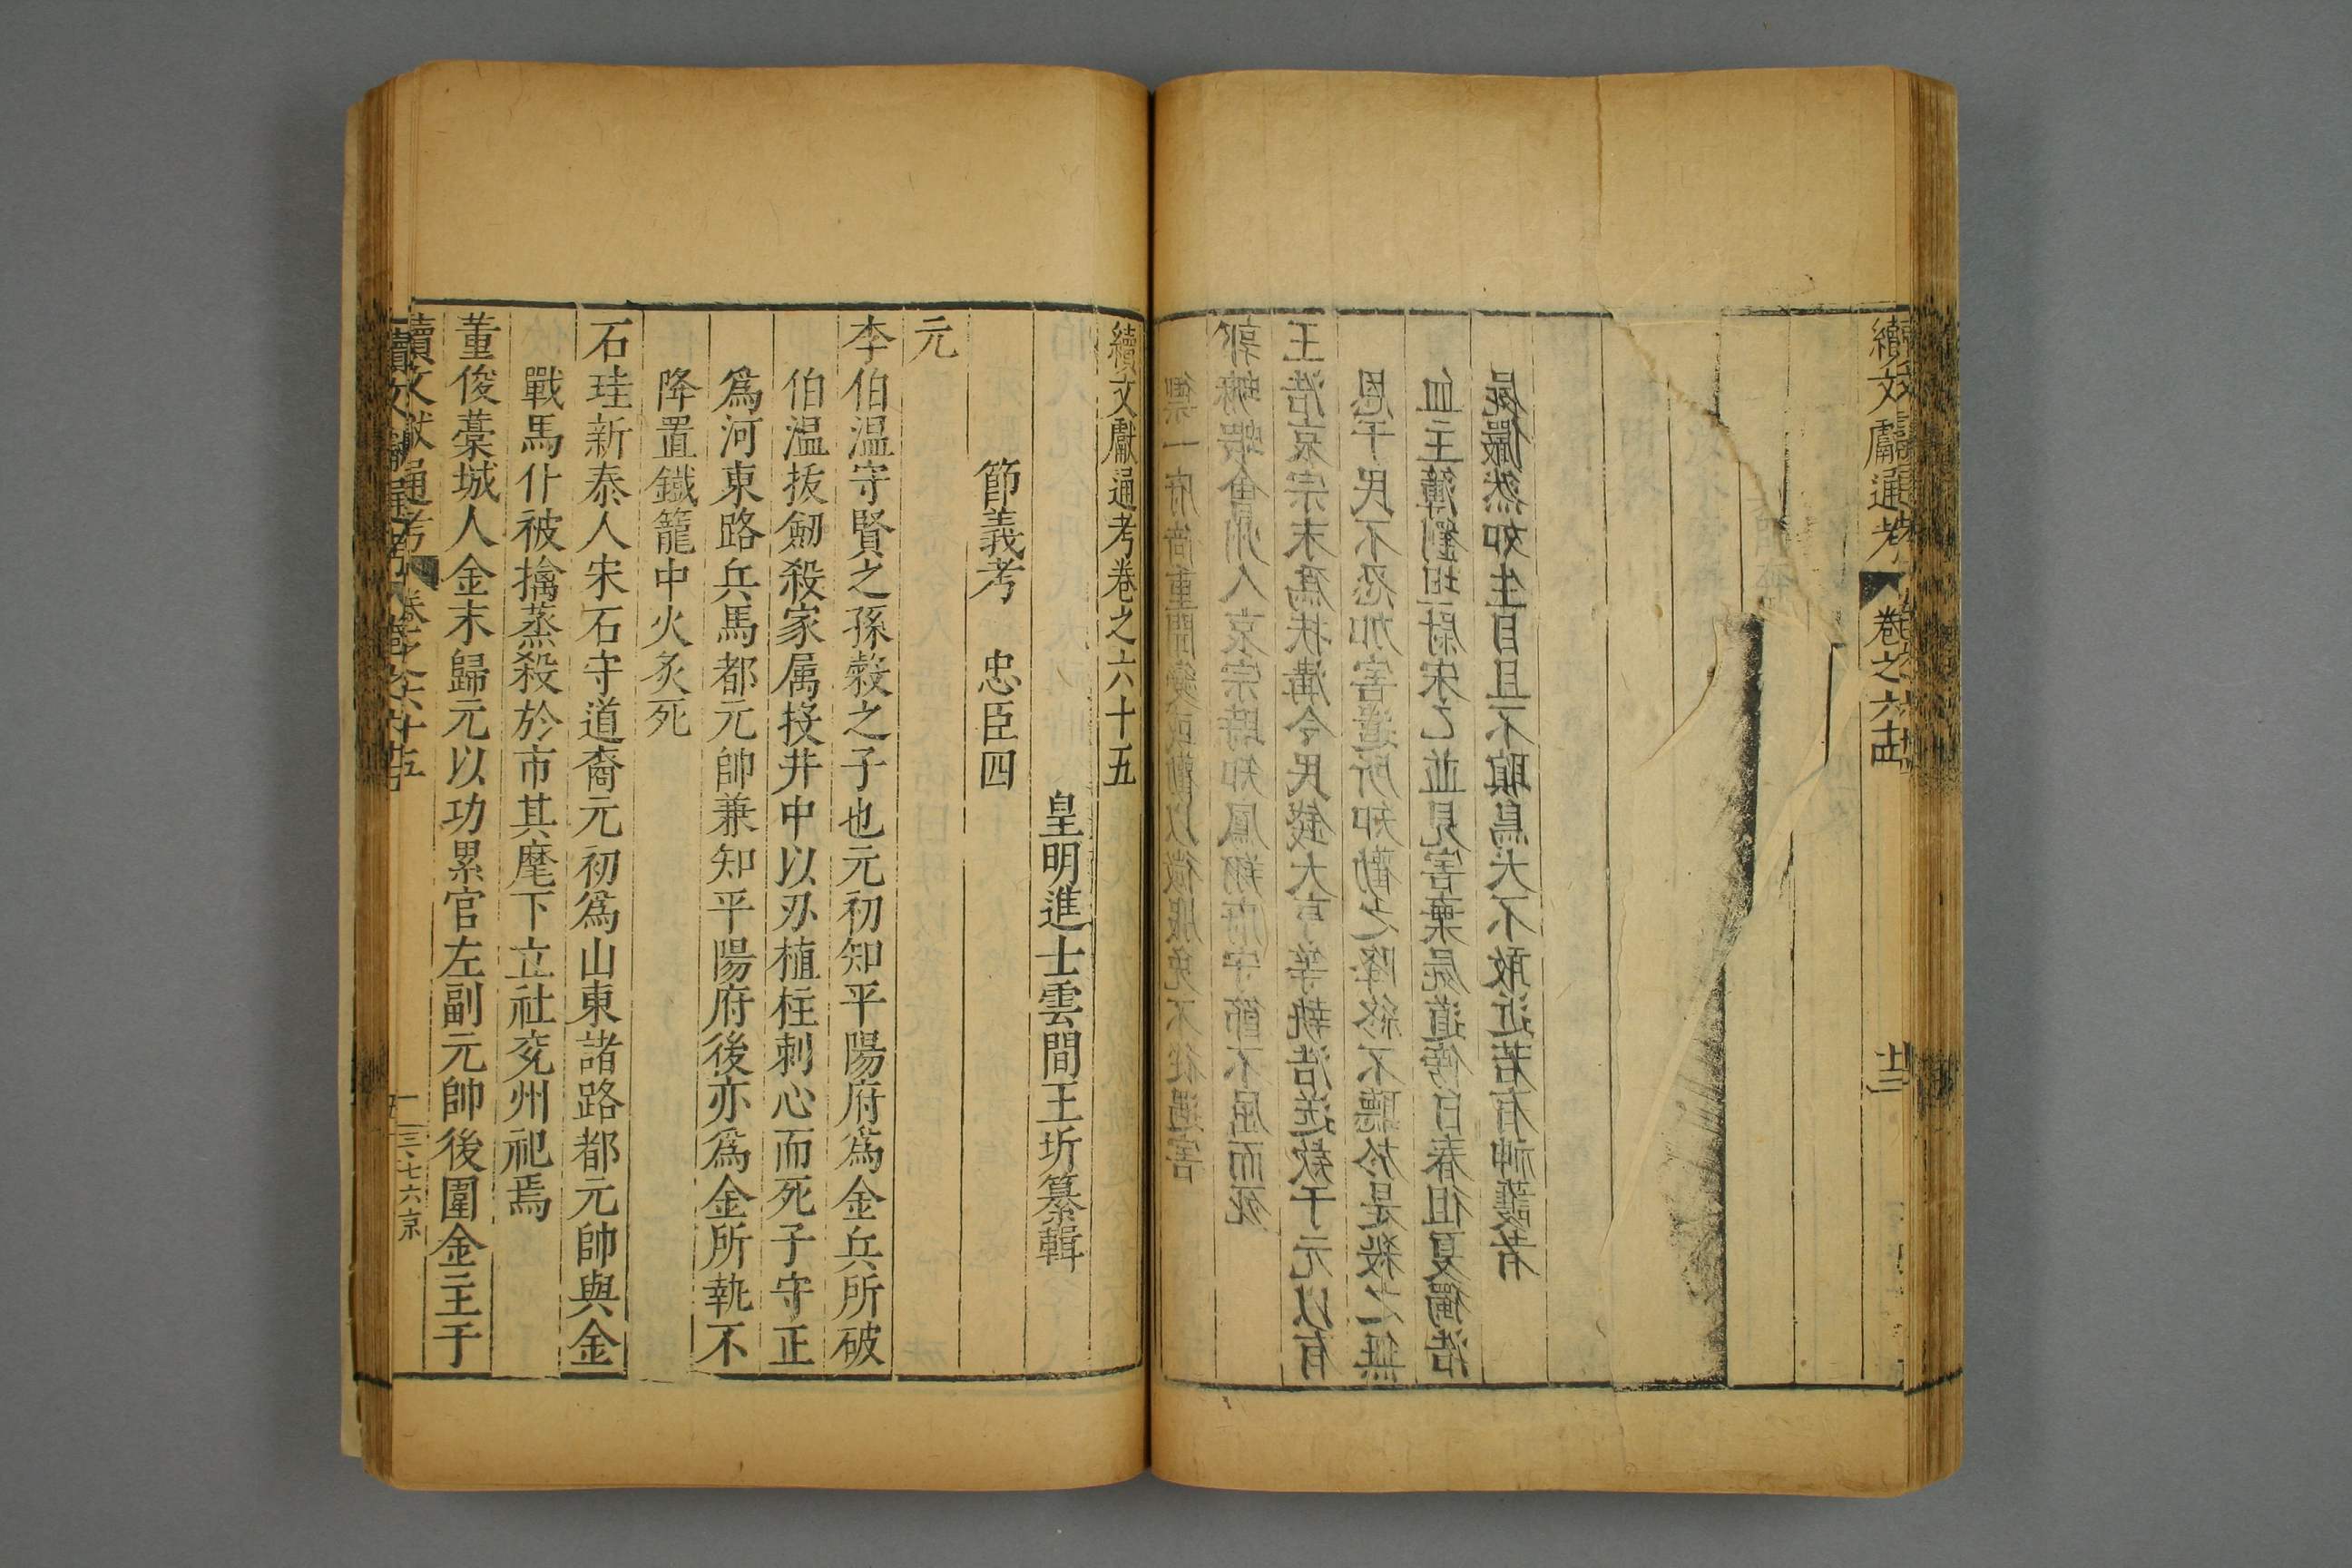 續文獻通考 卷之六十四
禦一府倚重聞變或勸以微服免不從遇害
會州人哀宗時知鳳翔府守節不屈而死
王浩哀宗末爲扶溝令民錢大亨等執浩送款于元以有
恩于民不忍加害遣所知勸之降終不聽於是殺之無
血主簿劉坦尉宋乙並見害棄屍道傍自春徂夏獨浩
屍儼然如生目且不瞑鳥犬不敢近若有神護者
續文獻通考卷之六十五
皇明進士雲間王圻纂輯
節義考　忠臣四
元
李伯温守賢之孫㲄之子也元初知平陽府爲金兵所破
伯温拔劒殺家属投井中以刃植柱刺心而死子守正
爲河東路兵馬都元帥兼知平陽府後亦爲金所執不
降置鐵籠中火炙死
石珪新泰人宋石守道裔元初爲山東諸路都元帥與金
戰馬仆被擒蒸殺於市其麾下立社兖州祀焉
董俊藁城人金末歸元以功累官左副元帥後圍金主于
續文獻通考 卷之六十五 一 三七六京